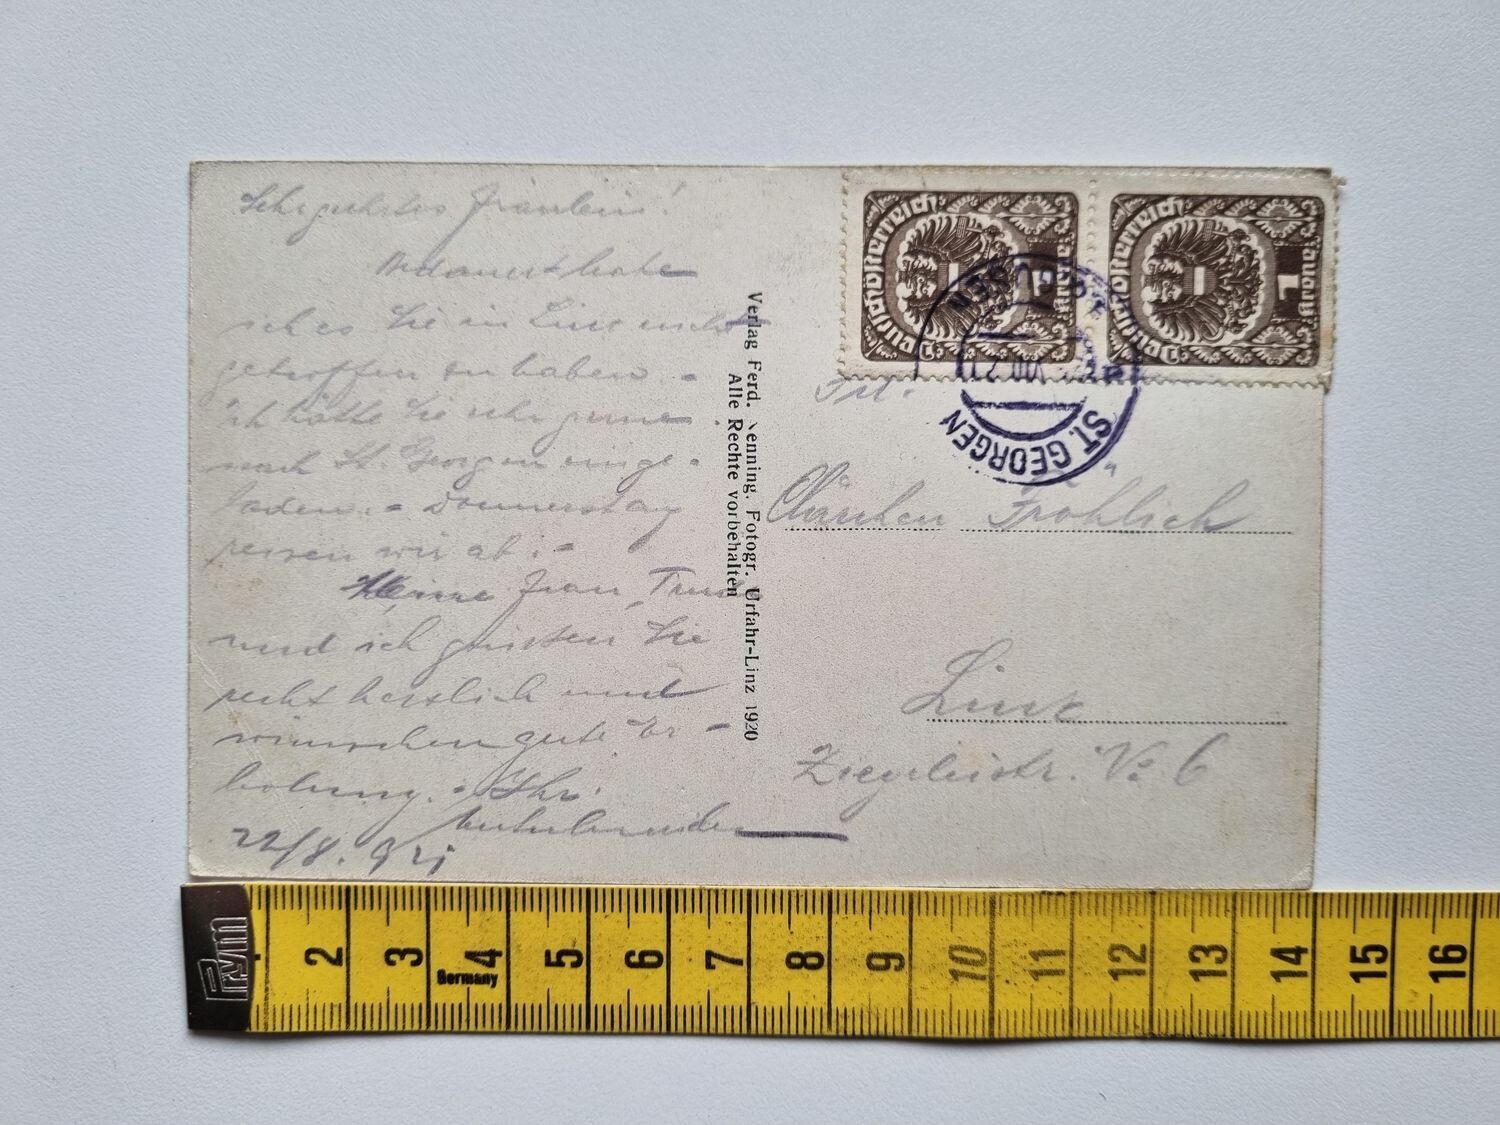 Sehr geehrtes Fräulein!
habe
ich es Sie in Linz nicht
getroffen zu haben. -
Ich hätte Sie sehr gerne
nach St. Georgen einge-
laden. - Donnerstag
reisen wir ab. -
Meine Frau,
und ich grüssen Sie
recht herzlich und
wünschen gute Er-
holung. - Ihr
22/8. 921
Verlag Ferd. Nenning. Fotogr. Urfahr-Linz 1920
Alle Rechte vorbehalten
Deutschösterreich
1 Krone
Deutschösterreich
1 Krone
ST. GEORGEN
VIII 21
Frl.
Clärchen Fröhlich
Linz
Ziegeleistr. No 6
Prym
2 3 4 5 6 7 8 9 10 11 12 13 14 15 16
Germany